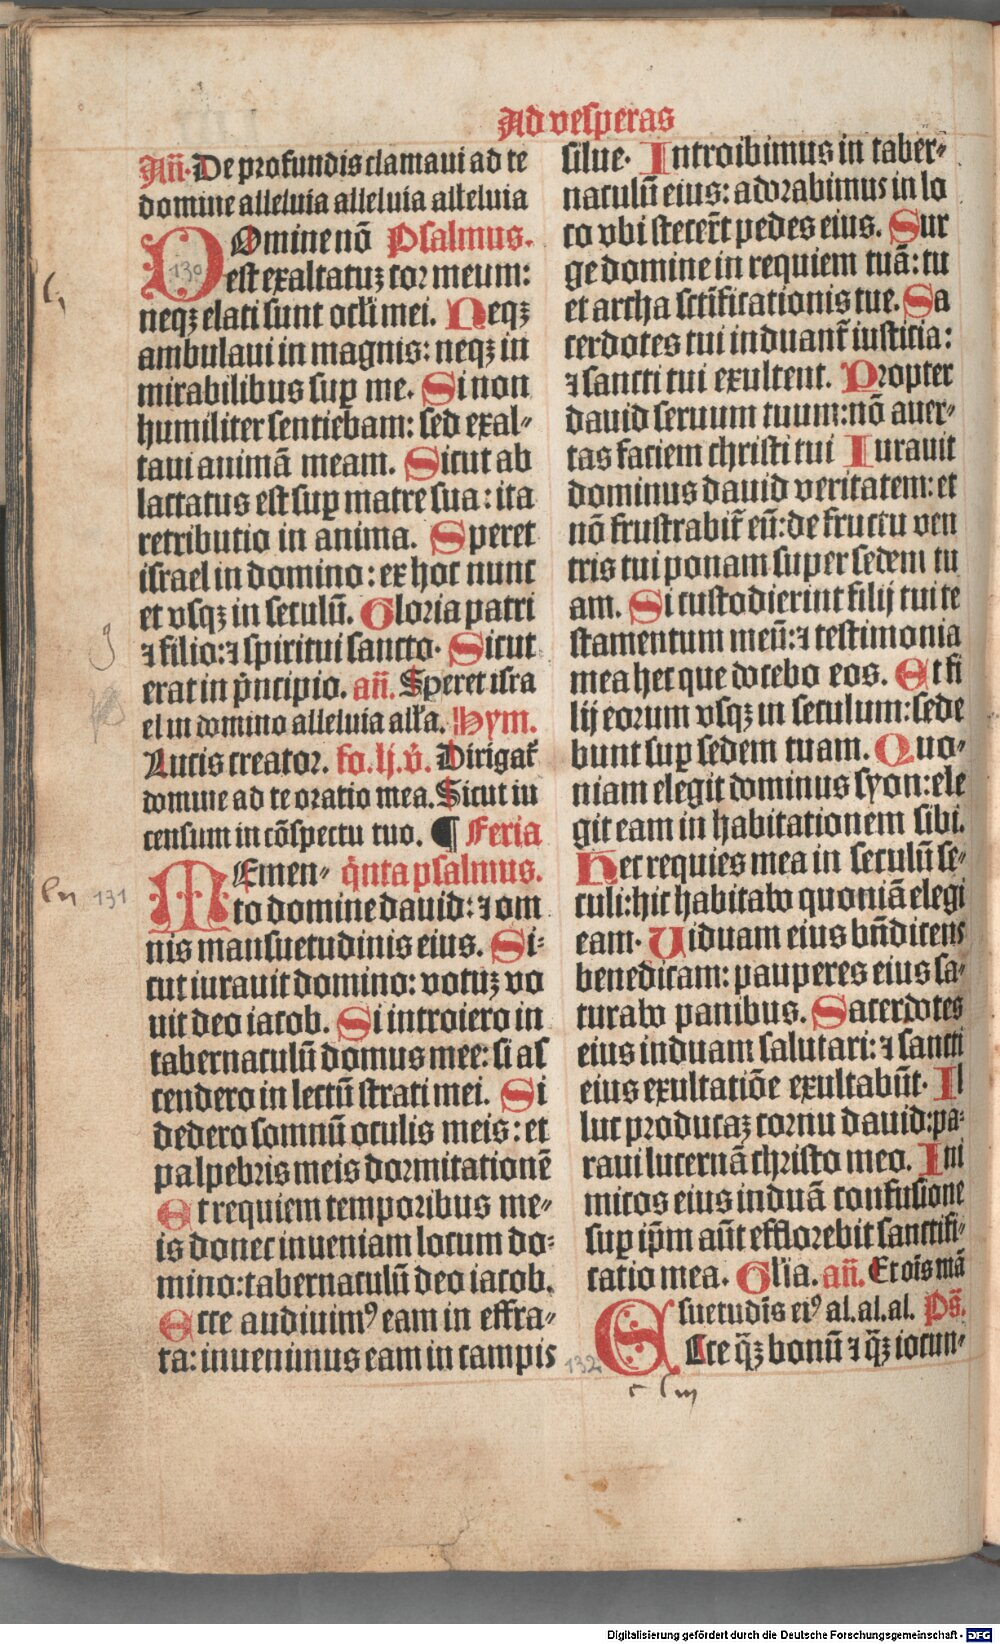 Ad vesperas
Añ. De profundis clamaui ad te
domine alleluia alleluia alleluia
DOmine nō Psalmus.
130
est exaltatuȝ cor meum:
neqȝ elati sunt oc̄li mei. Neqȝ
ambulaui in magnis: neqȝ in
mirabilibus suꝑ me. Si non
humiliter sentiebam: sed exal-
taui animā meam. Sicut ab
lactatus est suꝑ matre sua: ita
retributio in anima. Speret
israel in domino: ex hoc nunc
et vsqȝ in seculū. Gloria patri
⁊ filio: ⁊ spiritui sancto. Sicut
erat in pͥncipio. añ. Speret isra
el in domino alleluia alľa. Hym.
Lucis creator. fo. lj. v̓. Dirigat᷑
domine ad te oratio mea. Sicut in
censum in cōspectu tuo. ¶ Feria
MEmen- qͥnta psalmus.
131
to domine dauid: ⁊ om
nis mansuetudinis eius. Si-
cut iurauit domino: votuȝ vo
uit deo iacob. Si introiero in
tabernaculū domus mee: si as
cendero in lectū strati mei. Si
dedero somnū oculis meis: et
palpebris meis dormitationē
Et requiem temporibus me-
is donec inueniam locum do-
mino: tabernaculū deo iacob.
Ecce audiuimꝰ eam in effra-
ta: inuenimus eam in campis
silue. Introibimus in taber-
naculū eius: adorabimus in lo
co vbi stecer̄t pedes eius. Sur
ge domine in requiem tuā: tu
et archa sctīficationis tue. Sa
cerdotes tui induant᷑ iusticia:
⁊ sancti tui exultent. Propter
dauid seruum tuum: nō auer-
tas faciem christi tui Iurauit
dominus dauid veritatem: et
nō frustrabit᷑ eū: de fructu ven
tris tui ponam super sedem tu
am. Si custodierint filij tui te
stamentum meū: ⁊ testimonia
mea hec que docebo eos. Et fi
lij eorum vsqȝ in seculum: sede
bunt suꝑ sedem tuam. Quo-
niam elegit dominus syon: ele
git eam in habitationem sibi.
Hec requies mea in seculū se-
culi: hic habitabo quoniā elegi
eam. Uiduam eius bn̄dicens
benedicam: pauperes eius sa-
turabo panibus. Sacerdotes
eius induam salutari: ⁊ sancti
eius exultatiōe exultabūt. Il
luc producaȝ cornu dauid: pa-
raui lucernā christo meo. Ini
micos eius induā confusione
suꝑ ip̄m aūt efflorebit sanctifi-
catio mea. Gľia. añ. Et ois mā
suetudīs eiꝰ al. al. al. Ps̄.
ECce q̄ȝ bonū ⁊ q̄ȝ iocun-
132